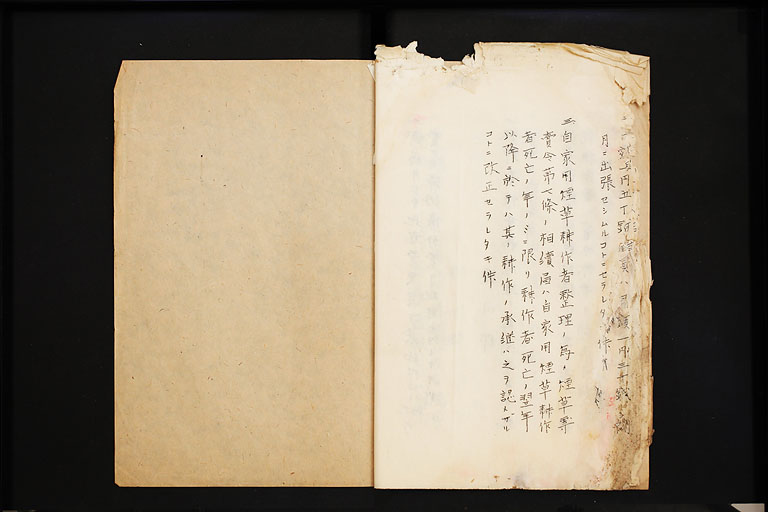 月ニ出張セシムルコトニセラレタキ件
三自家用煙草耕作者整理ノ為ノ煙草専
賣令第七條ノ相續届ハ自家用煙草耕作
者死亡ノ年ノミニ限リ耕作者死亡ノ翌年
以降ニ於テハ其ノ耕作ノ承継ハ之ヲ認メザル
コトニ改正セラレタキ件